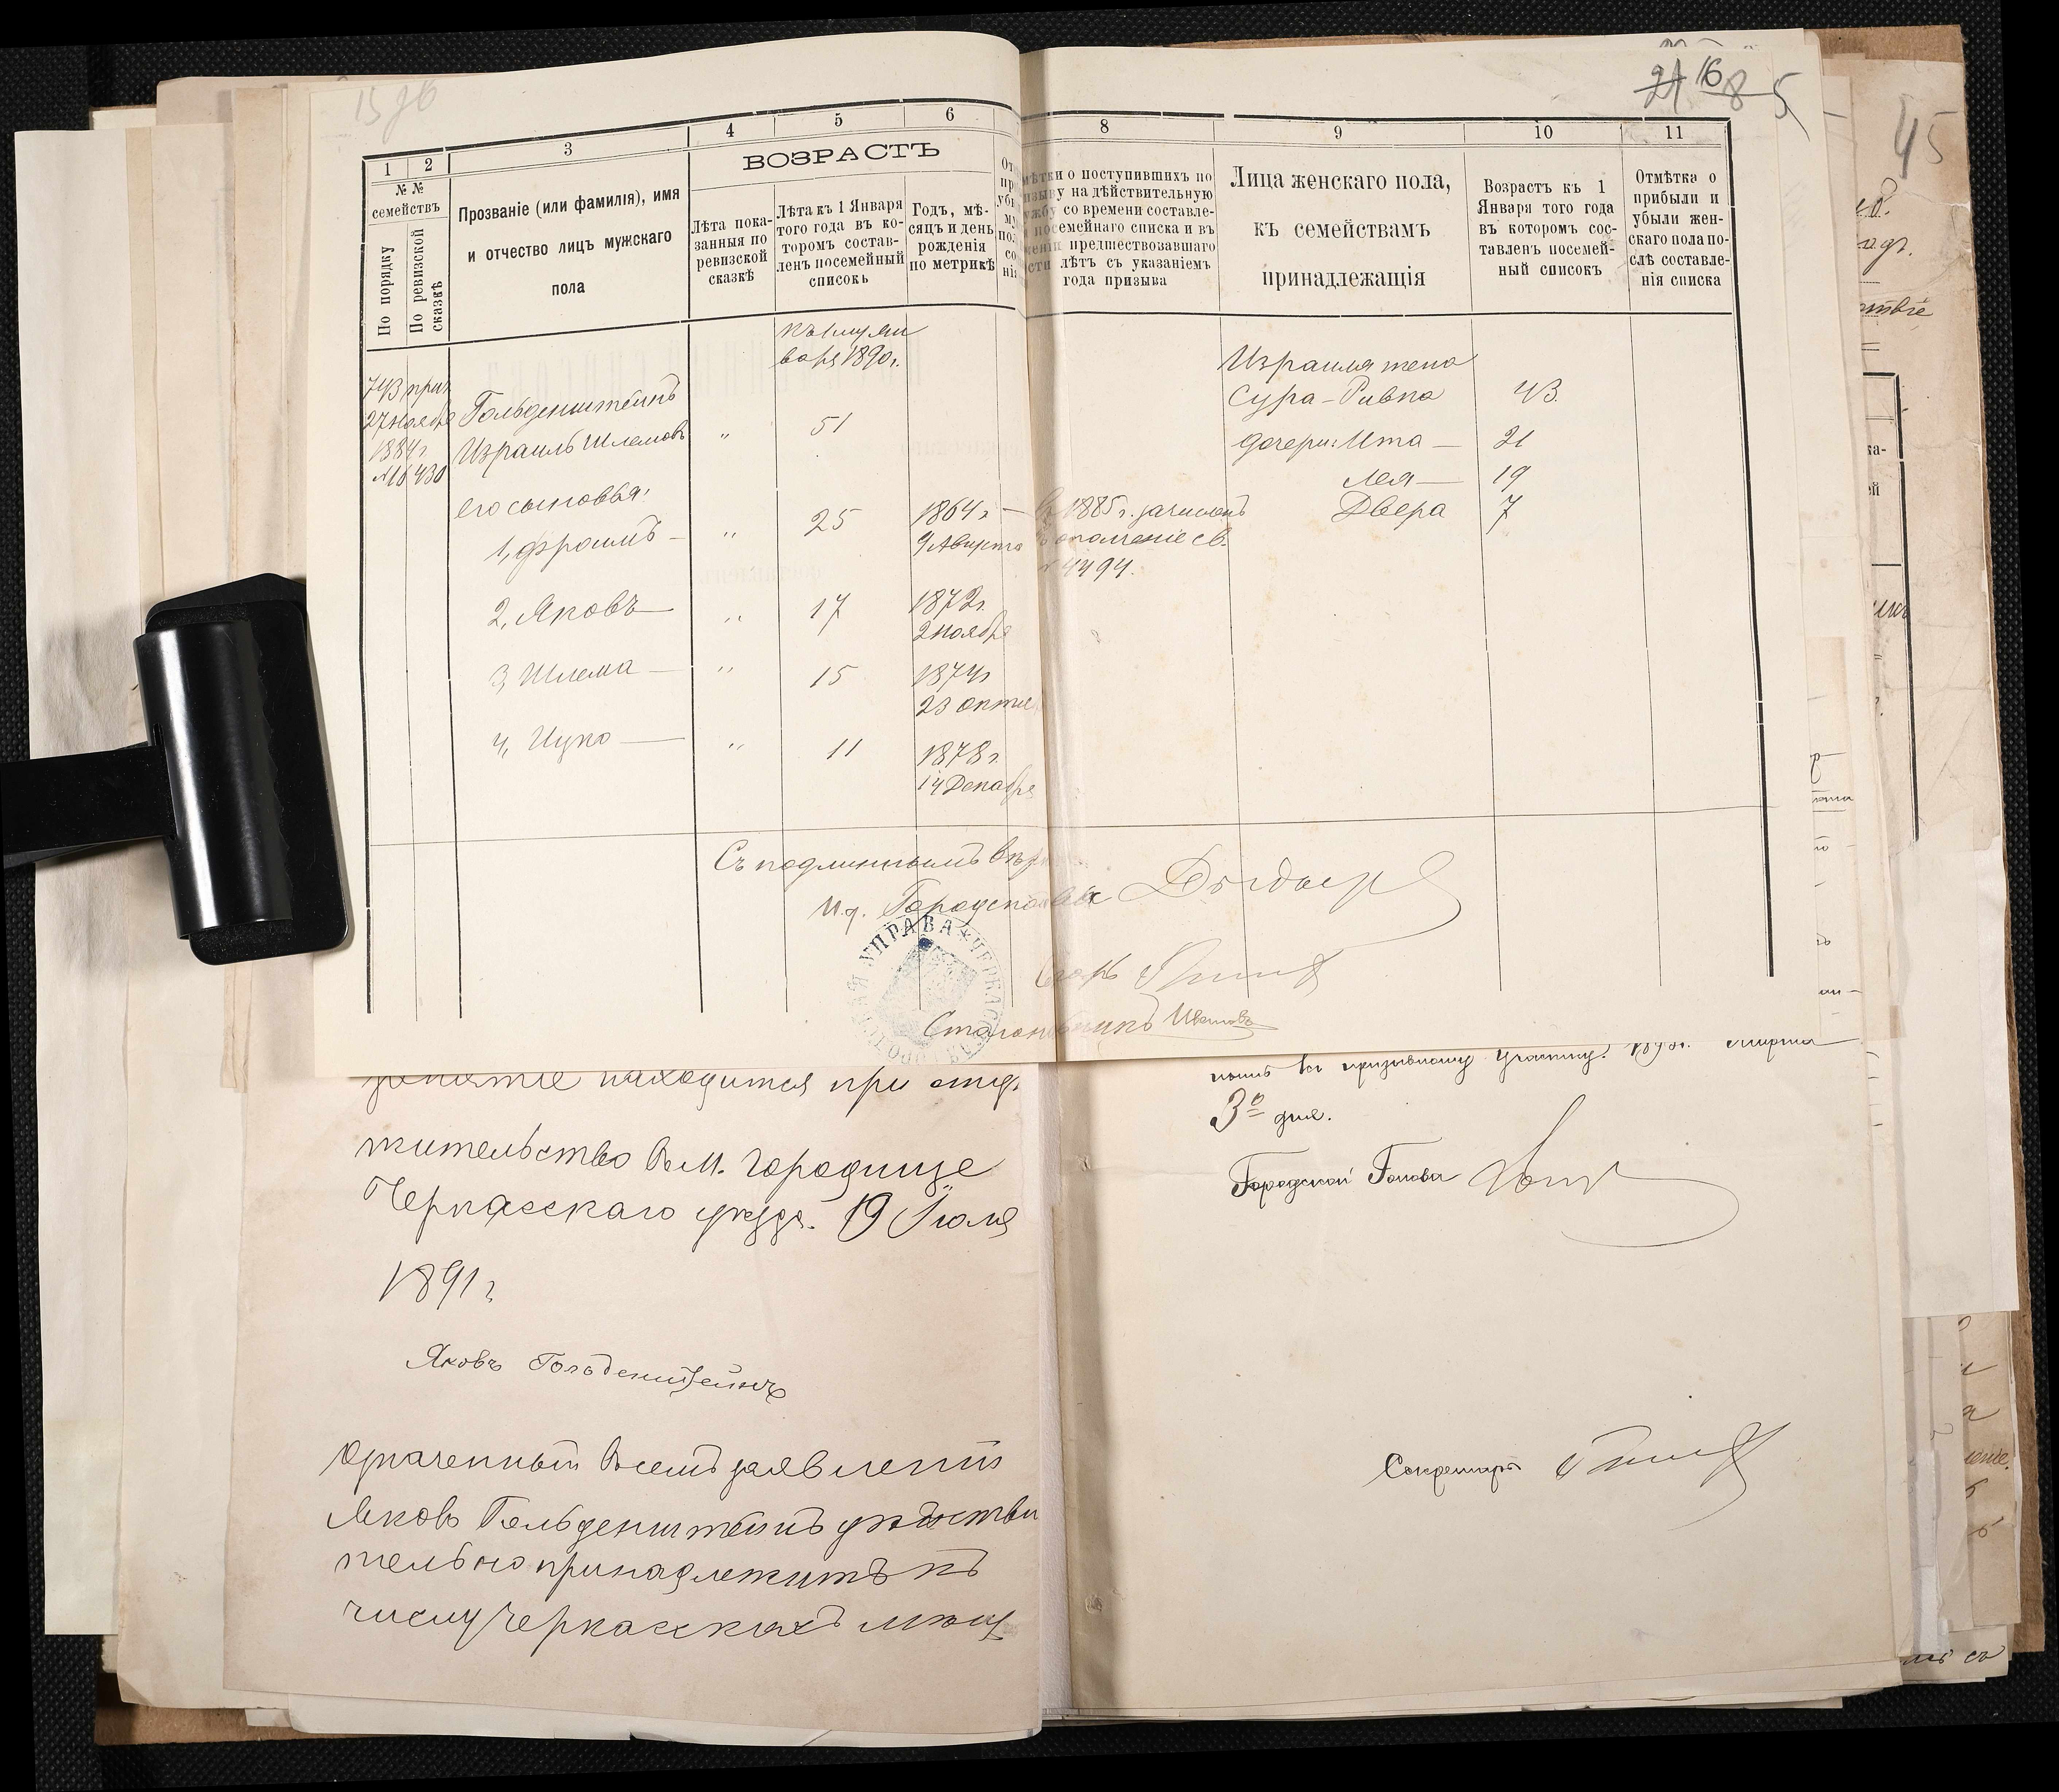 21 16 8 5
45
1 2 3 4 5 6 8 9 10 11
№ №
семействъ
По порядку
По ревизской сказкѣ
Прозваніе (или фамилія), имя
и отчество лицъ мужскаго
пола
ВОЗРАСТЪ
Лѣта пока-
занныя по
ревизской
сказкѣ
Лѣта къ 1 Января
того года въ ко-
торомъ состав-
ленъ посемейный
списокъ
Годъ, мѣ-
сяцъ и день
рожденія
по метрикѣ
мѣтки о поступившихъ по
призыву на дѣйствительную
службу со времени составле-
посемейнаго списка и въ
предшествовавшаго
лѣтъ съ указаніемъ
года призыва
Лица женскаго пола,
къ семействамъ
принадлежащія
Возрастъ къ 1
Января того года
въ которомъ сос-
тавленъ посемей-
ный списокъ
Отмѣтка о
прибыли и
убыли жен-
скаго пола по-
слѣ составле-
нія списка
къ 1му ян
варя 1890 г.
743 при
27 ноября
1884 г
№ 16430
Гольденштейнъ
Израиль Шлемовъ " 51
его сыновья:
1, Фроимъ " 25 1864 г
9 Августа
въ 1885 г. зачисленъ
въ ополченіе св.
№ 4494.
2, Яковъ " 17 1872 г.
2 ноября
3, Шлема " 15 1874 г
23 октя
4, Ицко " 11 1878 г.
14 Декабря
Израиля жена
Сура-Ривка 43
дочери: Ита 21
Лея 19
Двера 7
Съ подлиннымъ вѣрно
И.д. Городского
ГОРОДСКАЯ УПРАВА * ЧЕРКАССКАЯ
Секрь
Столоначальникъ Ивановъ
занятіе находится при отцѣ
жительство въ м. Городище
Черкасскаго уѣзда. 19 Іюля
1891 г.
Яковъ Гольденштейнъ
Означенный въ семъ заявленіи
Яковъ Гольденштейнъ дѣйстви
тельно принадлежитъ къ
числу Черкасскихъ мѣщ
къ призывному участку. Марта
3º дня.
Городской Голова
Секретарь